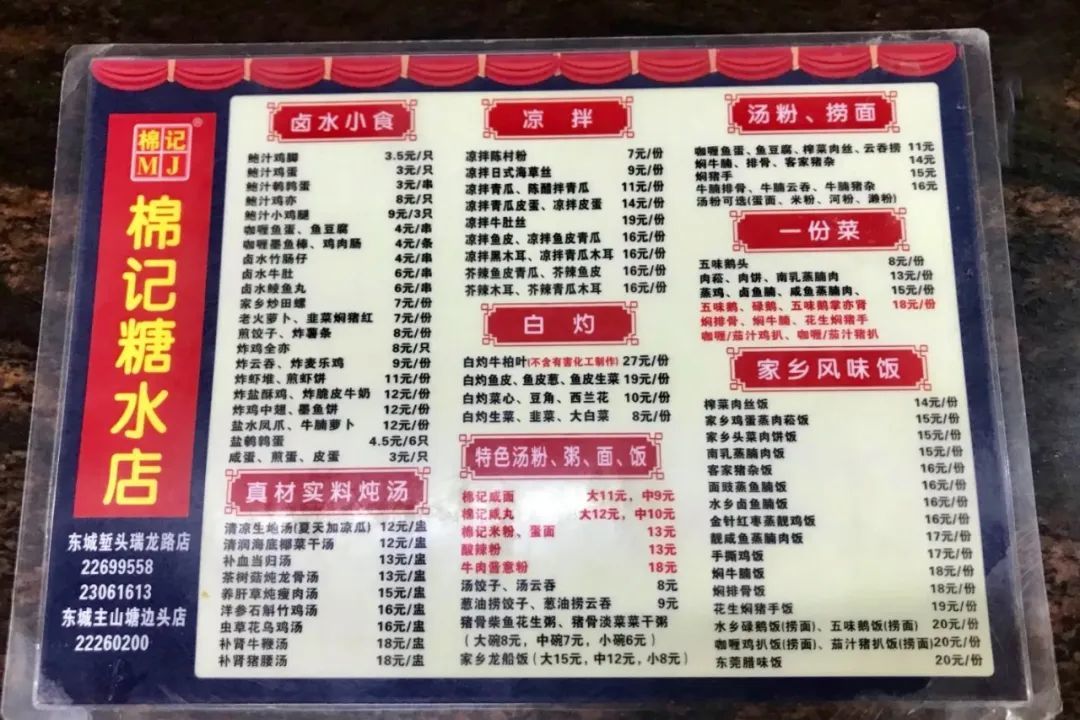 棉记®
MJ
棉记糖水店
东城堑头瑞龙路店
22699558
23061613
东城主山塘边头店
22260200
卤水小食
鲍汁鸡脚 3.5元/只
鲍汁鸡蛋 3元/只
鲍汁鹌鹑蛋 3元/串
鲍汁鸡亦 8元/只
鲍汁小鸡腿 9元/3只
咖喱鱼蛋、鱼豆腐 4元/串
咖喱墨鱼棒、鸡肉肠 4元/条
卤水竹肠仔 4元/串
卤水牛肚 6元/串
卤水鲮鱼丸 6元/串
家乡炒田螺 7元/份
老火萝卜、韭菜焖猪红 7元/份
煎饺子、炸薯条 8元/份
炸鸡全亦 8元/只
炸云吞、炸麦乐鸡 9元/份
炸虾堆、煎虾饼 11元/份
炸盐酥鸡、炸脆皮牛奶 12元/份
炸鸡中翅、墨鱼饼 12元/份
盐水凤爪、牛腩萝卜 12元/份
盐鹌鹑蛋 4.5元/6只
咸蛋、煎蛋、皮蛋 3元/只
真材实料炖汤
清凉生地汤(夏天加凉瓜) 12元/盅
清润海底椰菜干汤 12元/盅
补血当归汤 13元/盅
茶树菇炖龙骨汤 13元/盅
养肝草炖瘦肉汤 15元/盅
洋参石斛竹鸡汤 16元/盅
虫草花乌鸡汤 16元/盅
补肾牛鞭汤 18元/盅
补肾猪腰汤 18元/盅
凉 拌
凉拌陈村粉 7元/份
凉拌日式海草丝 9元/份
凉拌青瓜、陈醋拌青瓜 11元/份
凉拌青瓜皮蛋、凉拌皮蛋 14元/份
凉拌牛肚丝 19元/份
凉拌鱼皮、凉拌鱼皮青瓜 16元/份
凉拌黑木耳、凉拌青瓜木耳 16元/份
芥辣鱼皮青瓜、芥辣鱼皮 16元/份
芥辣木耳、芥辣青瓜木耳 16元/份
白 灼
白灼牛柏叶(不含有害化工制作) 27元/份
白灼鱼皮、鱼皮葱、鱼皮生菜 19元/份
白灼菜心、豆角、西兰花 10元/份
白灼生菜、韭菜、大白菜 8元/份
特色汤粉、粥、面、饭
棉记咸面 大11元，中9元
棉记咸丸 大12元，中10元
棉记米粉、蛋面 13元
酸辣粉 13元
牛肉酱意粉 18元
汤饺子、汤云吞 8元
葱油捞饺子、葱油捞云吞 9元
猪骨柴鱼花生粥、猪骨淡菜菜干粥
（大碗8元，中碗7元，小碗6元）
家乡龙船饭（大15元，中12元，小8元）
汤粉、捞面
咖喱鱼蛋、鱼豆腐、榨菜肉丝、云吞捞 11元
焖牛腩、排骨、客家猪杂 14元
焖猪手 15元
牛腩排骨、牛腩云吞、牛腩猪杂 16元
汤粉可选(蛋面、米粉、河粉、濑粉)
一份菜
五味鹅头 8元/份
肉菘、肉饼、南乳蒸腩肉 13元/份
蒸鸡、卤鱼腩、咸鱼蒸腩肉、 15元/份
五味鹅、碌鹅、五味鹅掌亦肾 18元/份
焖排骨、焖牛腩、花生焖猪手
咖喱/茄汁鸡扒、咖喱/茄汁猪扒
家乡风味饭
榨菜肉丝饭 14元/份
家乡鸡蛋蒸肉菘饭 15元/份
家乡头菜肉饼饭 15元/份
南乳蒸腩肉饭 15元/份
客家猪杂饭 16元/份
面豉蒸鱼腩饭 16元/份
水乡卤鱼腩饭 16元/份
金针红枣蒸靓鸡饭 16元/份
靓咸鱼蒸腩肉饭 17元/份
手撕鸡饭 17元/份
焖牛腩饭 18元/份
焖排骨饭 18元/份
花生焖猪手饭 19元/份
水乡碌鹅饭(捞面)、五味鹅饭(捞面) 20元/份
咖喱鸡扒饭(捞面)、茄汁猪扒饭(捞面) 20元/份
东莞腊味饭 20元/份